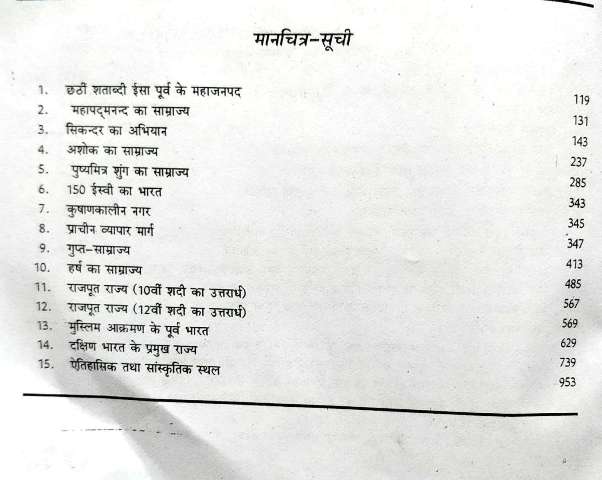 मानचित्र-सूची
1. छठीं शताब्दी ईसा पूर्व के महाजनपद 119
2. महापद्मनन्द का साम्राज्य 131
3. सिकन्दर का अभियान 143
4. अशोक का साम्राज्य 237
5. पुष्यमित्र शुंग का साम्राज्य 285
6. 150 ईस्वी का भारत 343
7. कुषाणकालीन नगर 345
8. प्राचीन व्यापार मार्ग 347
9. गुप्त-साम्राज्य 413
10. हर्ष का साम्राज्य 485
11. राजपूत राज्य (10वीं शदी का उत्तरार्ध) 567
12. राजपूत राज्य (12वीं शदी का उत्तरार्ध) 569
13. मुस्लिम आक्रमण के पूर्व भारत 629
14. दक्षिण भारत के प्रमुख राज्य 739
15. ऐतिहासिक तथा सांस्कृतिक स्थल 953